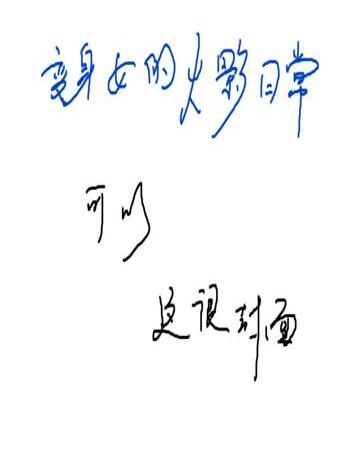 变身女的火影日常
可以
这很封面